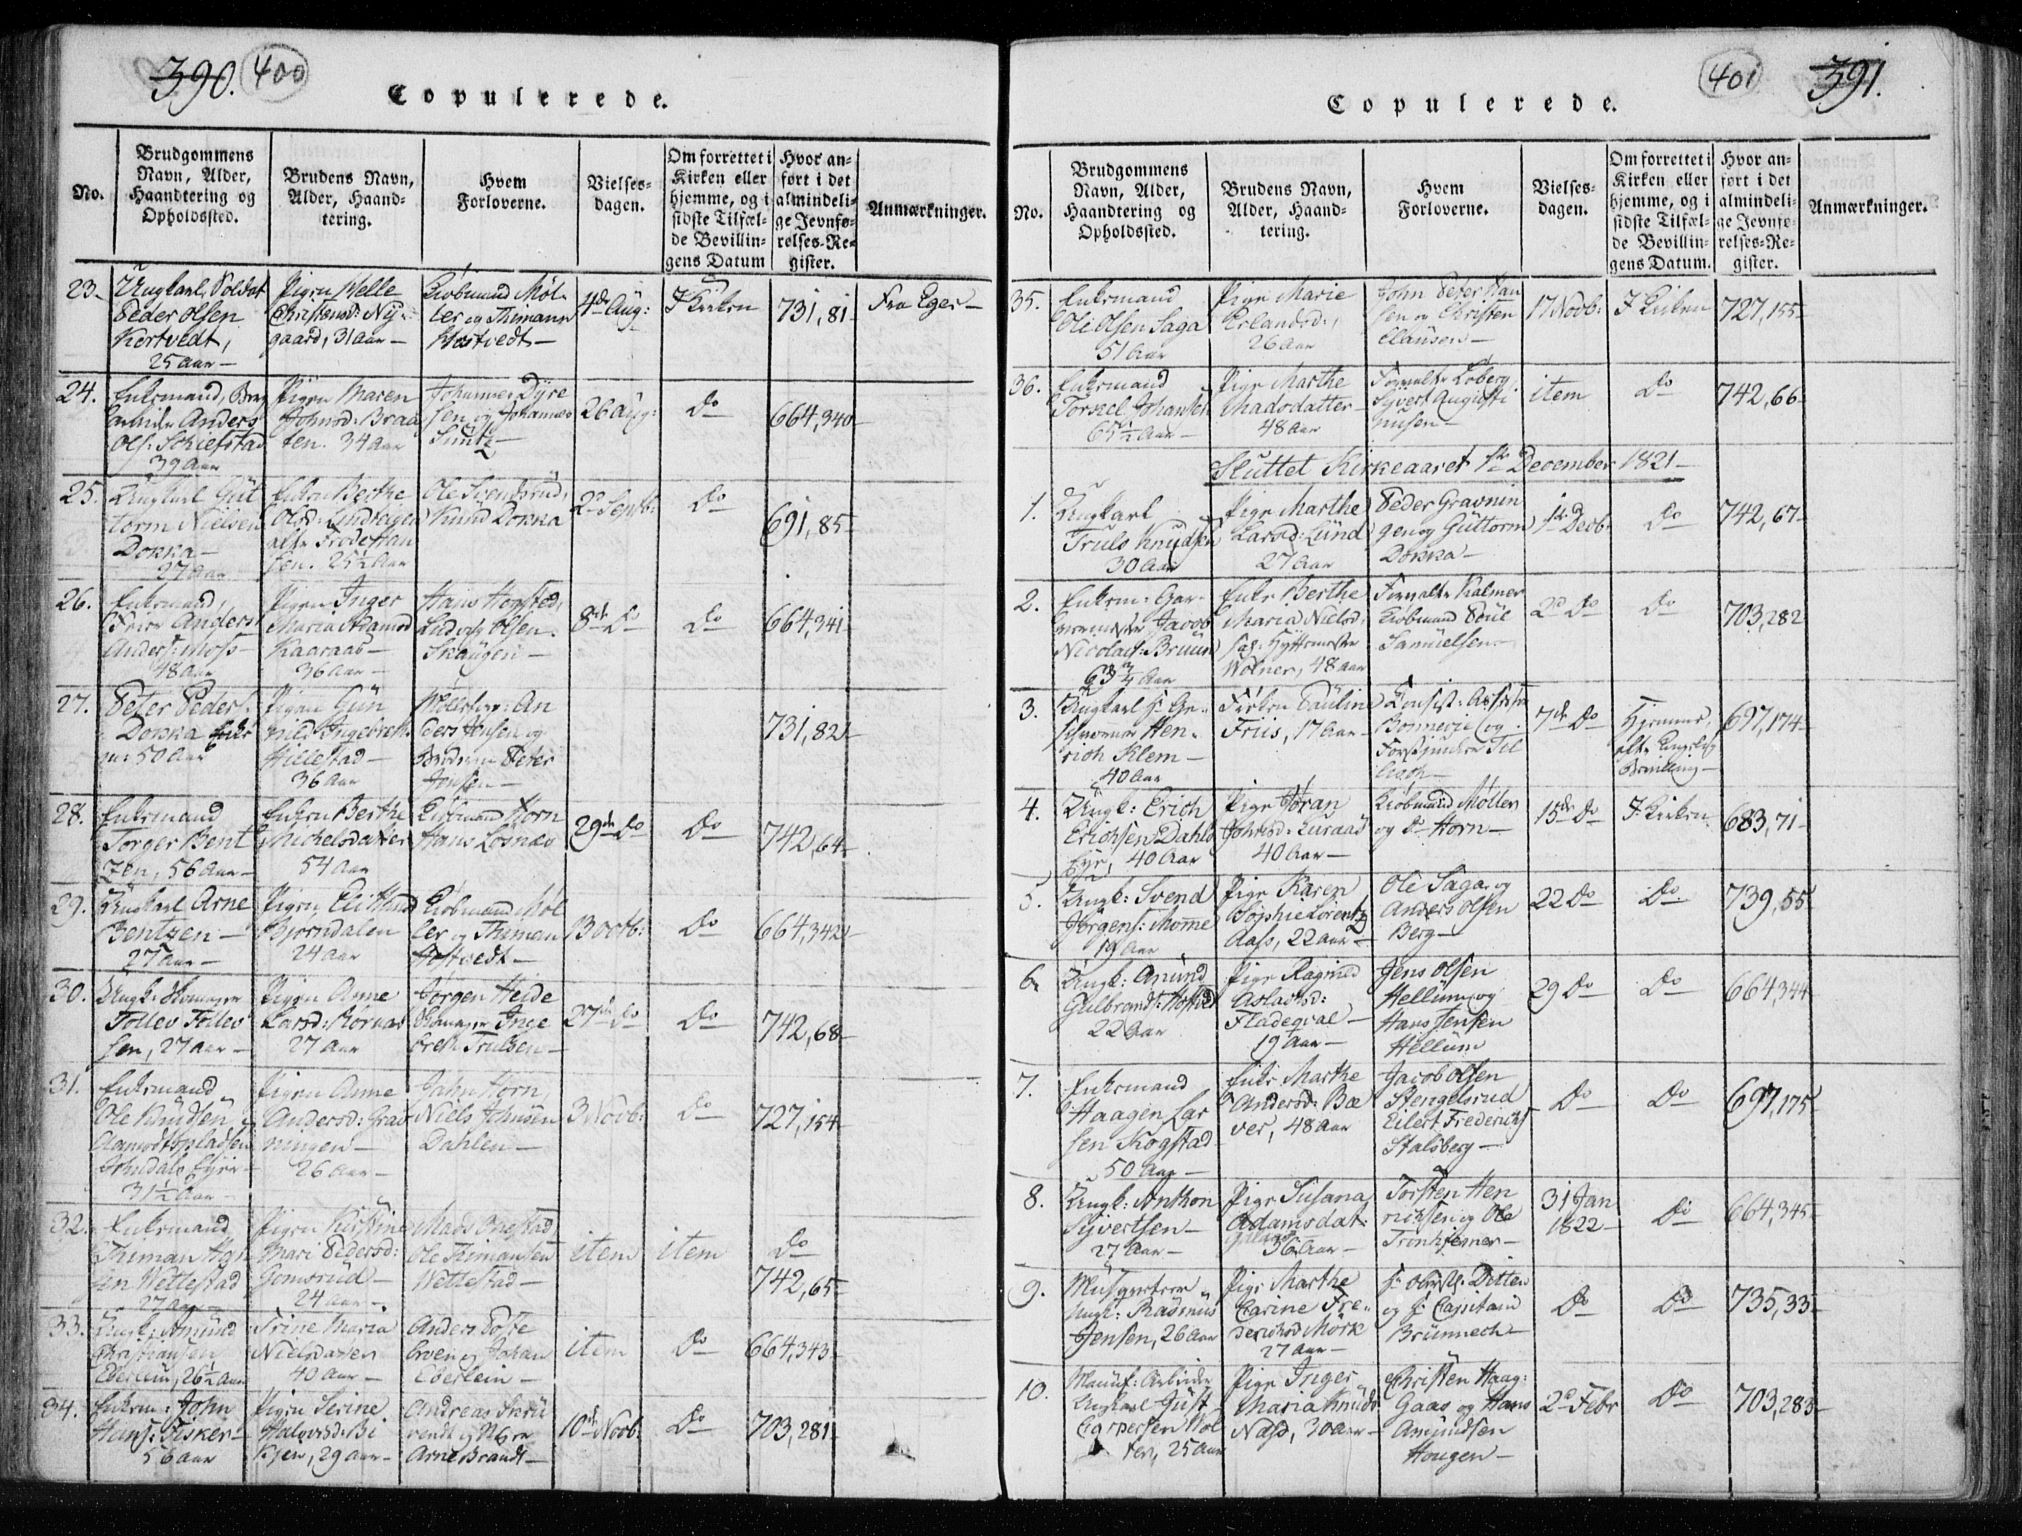 390. 400
Copulerede.
No.
Brudgommens Navn, Alder, Haandtering og Opholdssted.
Brudens Navn, Alder, Haandtering.
Hvem Forloverne.
Vielsesdagen.
Om forrettet i Kirken eller hjemme, og i sidste Tilfælde Bevillingens Datum
Hvor anført i det almindelige Jevnførelses-Register.
Anmærkninger.
23.
Ungkarl, Soldat
Peder Olsen
25 Aar
Pigen Helle
Christensd: Ny-
gaard, 31 Aar
Kiøbmand Møl-
ler og Thimann
4de Aug:
I Kirken
731,81
Fra Eger
24.
Enkemand,
Anders
39 Aar
Pigen Maren
Johnsd: Braa
ten. 34 Aar
Johannes Dyre
sen og Johannes
26 Aug:
Do
664,340
25.
Ungkarl Gut
torm Nielsen
Dokka
27 Aar
Enken Berthe
Olsd:
sen. 25½ Aar
Ole
Knud Dokka
2 Septb:
Do
691,85
26.
Enkemand,
Anders
Anders: Moss
48 Aar
Pigen Inger
Maria
36 Aar
Hans
Ludvig Olsen
8de Do
Do
664,341
27.
Peter Peders:
Dokka
50 Aar
Pigen Gun
Hillestad
36 Aar
An
ders Jensen og
Peter
Jensen
731,82
28.
Enkemand
Torger Bent
zen, 56 Aar
Enken Berthe
Michelsdatter
54 Aar
Kiøbmand Horn
Hans Løsnæs
29de Do
Do
742,64
29.
Ungkarl Arne
Bentzen
27 Aar
Pigen
Bjorndalen
24 Aar
Kiøbmand Møl
ler og Thiman
13 Octb:
Do
664,342
30.
Ungk:
Tollev Tollev
sen, 27 Aar
Pigen Anne
Larsd:
27 Aar
Jørgen Heide
Inge
breth Trulsen
27de Do
Do
742,68
31.
Enkemand
Ole Knudsen
31½ Aar
Pigen Anne
Andersd: Grav
ningen
26 Aar
Jahn Horn,
Niels Johnsen
Dahlen
3 Novb:
Do
727,154
32.
Enkemand
Thiman
sen Wettestad
27 Aar
Pigen Kirstine
Mari Pedersd:
Gomsrud
24 Aar
Mads
Ole Thimansen
Wettestad
item
item
Do
742,65
33.
Ungk: Amund
Christiansen
Eberlein, 26½ Aar
Trine Maria
Nielsdatter
40 Aar
Anders
og Johan
Eberlein
item
Do
664,343
34.
Enkem: John
Hans: Fisker
56 Aar
Pigen Serine
Halvorsd: Bi
kjen, 29 Aar
Andreas
Arne Brandt
10de Novb:
Do
703,281
401 391.
Copulerede.
No.
Brudgommens Navn, Alder, Haandtering og Opholdssted.
Brudens Navn, Alder, Haandtering.
Hvem Forloverne.
Vielsesdagen.
Om forrettet i Kirken eller hjemme, og i sidste Tilfælde Bevillingens Datum.
Hvor anført i det almindelige Jevnførelses-Register.
Anmærkninger.
35.
Enkemand
Ole Olsen Saga
51 Aar
Pige Marie
Erlandsd:,
26 Aar
John Peter Han
sen og Christen
Clausen
17 Novb:
I Kirken
727,155
36.
Enkemand
Torkel Johansen
65½ Aar
Pige Marthe
Madsdatter
48 Aar
Foged
Syvert Augusti
nusen
item
Do
742,66
Sluttet Kirkeaaret 1ste December 1821
1.
Ungkarl
Truls Knudsen
30 Aar
Pige Marthe
Larsd: Lund
27 Aar
Peder Gravnin
gen og Guttorm
Dokka
1ste Decb:
Do
742,67
2.
Enkem: Gar-
Jacob
Nicolais: Bruun
63¾ Aar
Enke Berthe
Maria Nielsd:
Wolner, 48 Aar
Kiøbmand Poul
Samuelsen
2d Do
Do
703,282
3.
Ungkarl
Hen-
rich Klem
40 Aar
Frøken Paulin
Friis, 17 Aar
Consist:
og
7de Do
Hjemme,
Bevilling
697,174
4.
Ungk: Erich
Erichsen Dahls
Eye, 40 Aar
Pige Jøran
Johnsd: Kuraas
40 Aar
Kiøbmand Møller
og do Horn
15de Do
I Kirken
683,71
5.
Ungk: Svend
Jørgens: Momme
19 Aar
Pige Karen
Sophie Lorentz
Aass, 22 Aar
Ole Saga og
Anders Olsen
Berg
22 Do
Do
739,55
6.
Ungk: Amund
Gulbrands:
22 Aar
Pige Ragnild
Aslaksd:
Fladeqval
19 Aar
Jens Olsen
Hellum og
Hans Jensen
Hellum
29 Do
Do
664,344
7.
Enkemand
Haagen Lar
sen Kogstad
50 Aar
Enke Marthe
Andersd: Bæ
ver, 48 Aar
Jacob Olsen
Stengelsrud
Eilert Fredericks
Stalsberg
Do
Do
697,175
8.
Ungk: Anthon
Syvertsen
27 Aar
Pige Susana
Adamsdat:
36 Aar
Torsten Hen
richsen og Ole
Tronhjemer
31 Jan
1822
Do
664,345
9.
Musqueteer
Ungk: Rasmus
Jensen, 26 Aar
Pige Marthe
Carine Fre-
derichsd Mørk
27 Aar
Hr Oberstl: Ditten
og Hr Capitain
Brünnech
Do
Do
735,33
10.
Manuf: Arbeider
Ungkarl Just
Caspersen Wol
ver, 25 Aar
Pige Inger
Maria Knuds
Næss, 30 Aar
Christen Haag:
Gaas og Hans
Amundsen
Hougen
2d Febr
Do
703,283